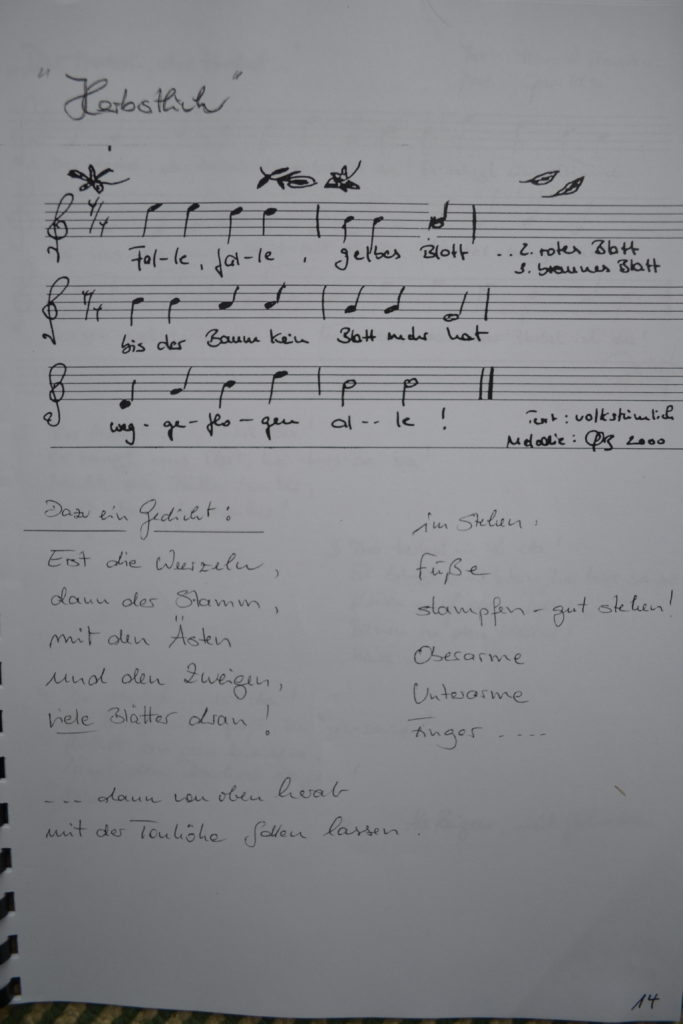 "Herbstlich"
4/4
Fal-le, fal-le, gelbes Blatt .. 2. rotes Blatt
3. braunes Blatt
4/4
bis der Baum kein Blatt mehr hat
weg-ge-flo-gen al--le!
Text: volkstümlich
Melodie: 2000
Dazu ein Gedicht:
Erst die Wurzeln,
dann der Stamm,
mit den Ästen
und den Zweigen,
viele Blätter dran!
.... dann von oben herab
mit der Tonhöhe fallen lassen.
im Stehen:
Füße
stampfen - gut stehen!
Oberarme
Unterarme
Finger ....
14